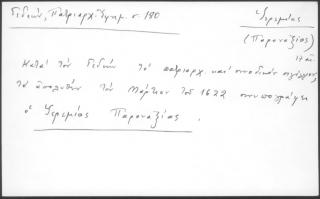 Γεδεών, Πατριαρχ. Ἐφημ. σ 190
Ἱερεμίας
(Παροναξίας)
17 αἰ.
Κατά τόν Γεδεών τό πατριαρχ. καί συνοδικόν σιγίλλιον
τό ἀπολυθέν τόν Μάρτιον τοῦ 1622 συνυπογράφει
ὁ Ἱερεμίας Παροναξίας.